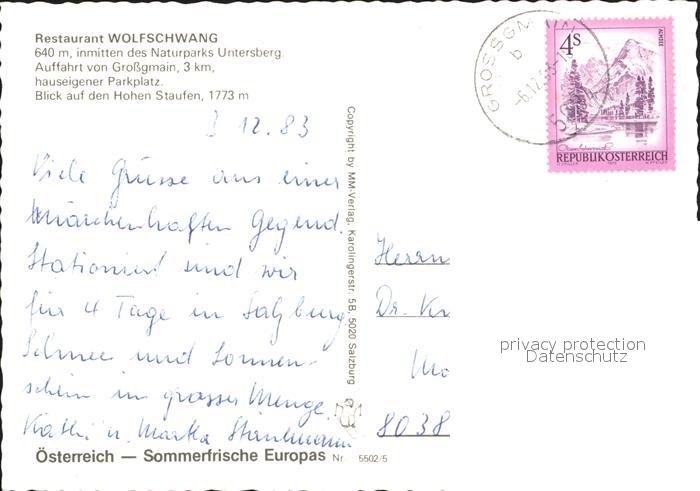 Restaurant WOLFSCHWANG
640 m, inmitten des Naturparks Untersberg.
Auffahrt von Großgmain, 3 km,
hauseigener Parkplatz.
Blick auf den Hohen Staufen, 1773 m
12.83
Viele Grüsse aus einer
märchenhaften Gegend.
Stationiert sind wir
für 4 Tage in Salzburg
Schnee und Sonnen-
schein in grosser Menge.
Kathi u. Martha
Österreich — Sommerfrische Europas Nr. 5502/5
Copyright by MM-Verlag, Karolingerstr. 5B, 5020 Salzburg
GROSSGM
b
4S
ALMSEE
REPUBLIK ÖSTERREICH
Herrn
Dr.
8038
privacy protection
Datenschutz